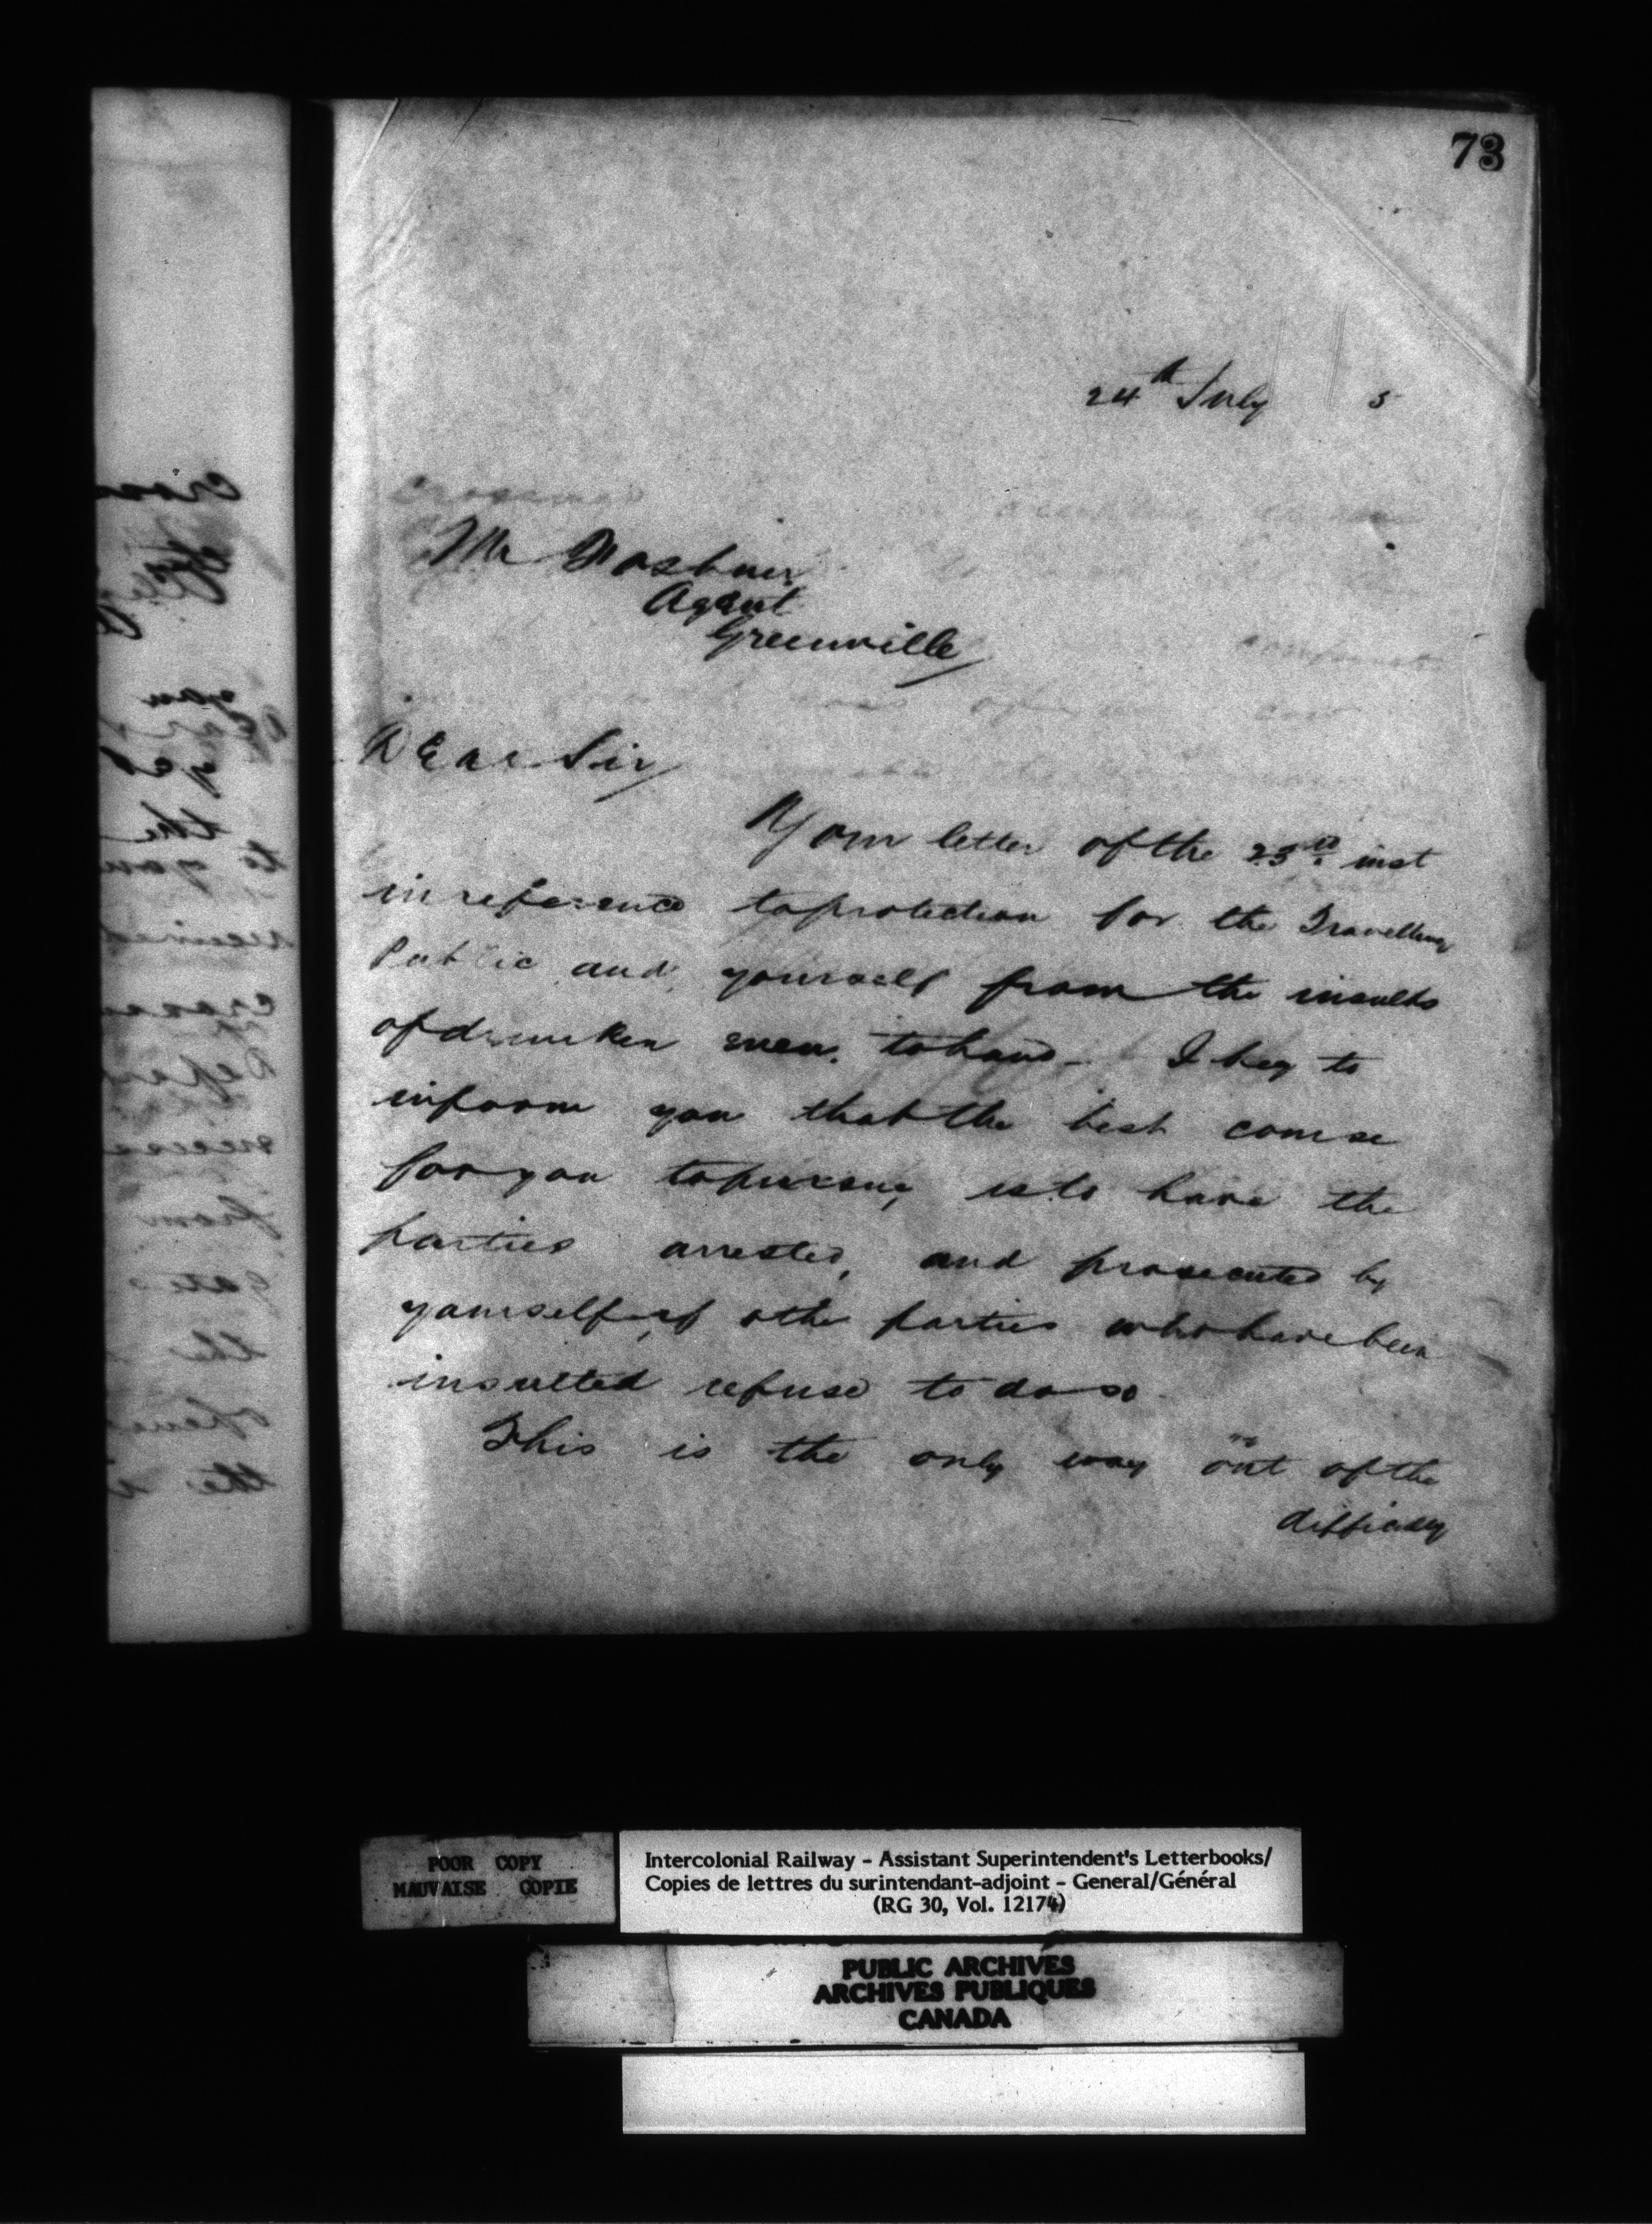 73
24th July 5
Mr
Agent
Greenville
Dear Sir
Your letter of the 23rd inst
in reference to protection for the Travelling
Public and yourself from the insults
of drunken men. to hand - I beg to
inform you that the best course
for you to pursue, is to have the
parties arrested, and prosecuted by
yourself, if other parties who have been
insulted refuse to do so
This is the only way out of the
difficulty
POOR COPY
MAUVAISE COPIE
Intercolonial Railway - Assistant Superintendent's Letterbooks/
Copies de lettres du surintendant-adjoint - General/Général
(RG 30, Vol. 12174)
PUBLIC ARCHIVES
ARCHIVES PUBLIQUES
CANADA